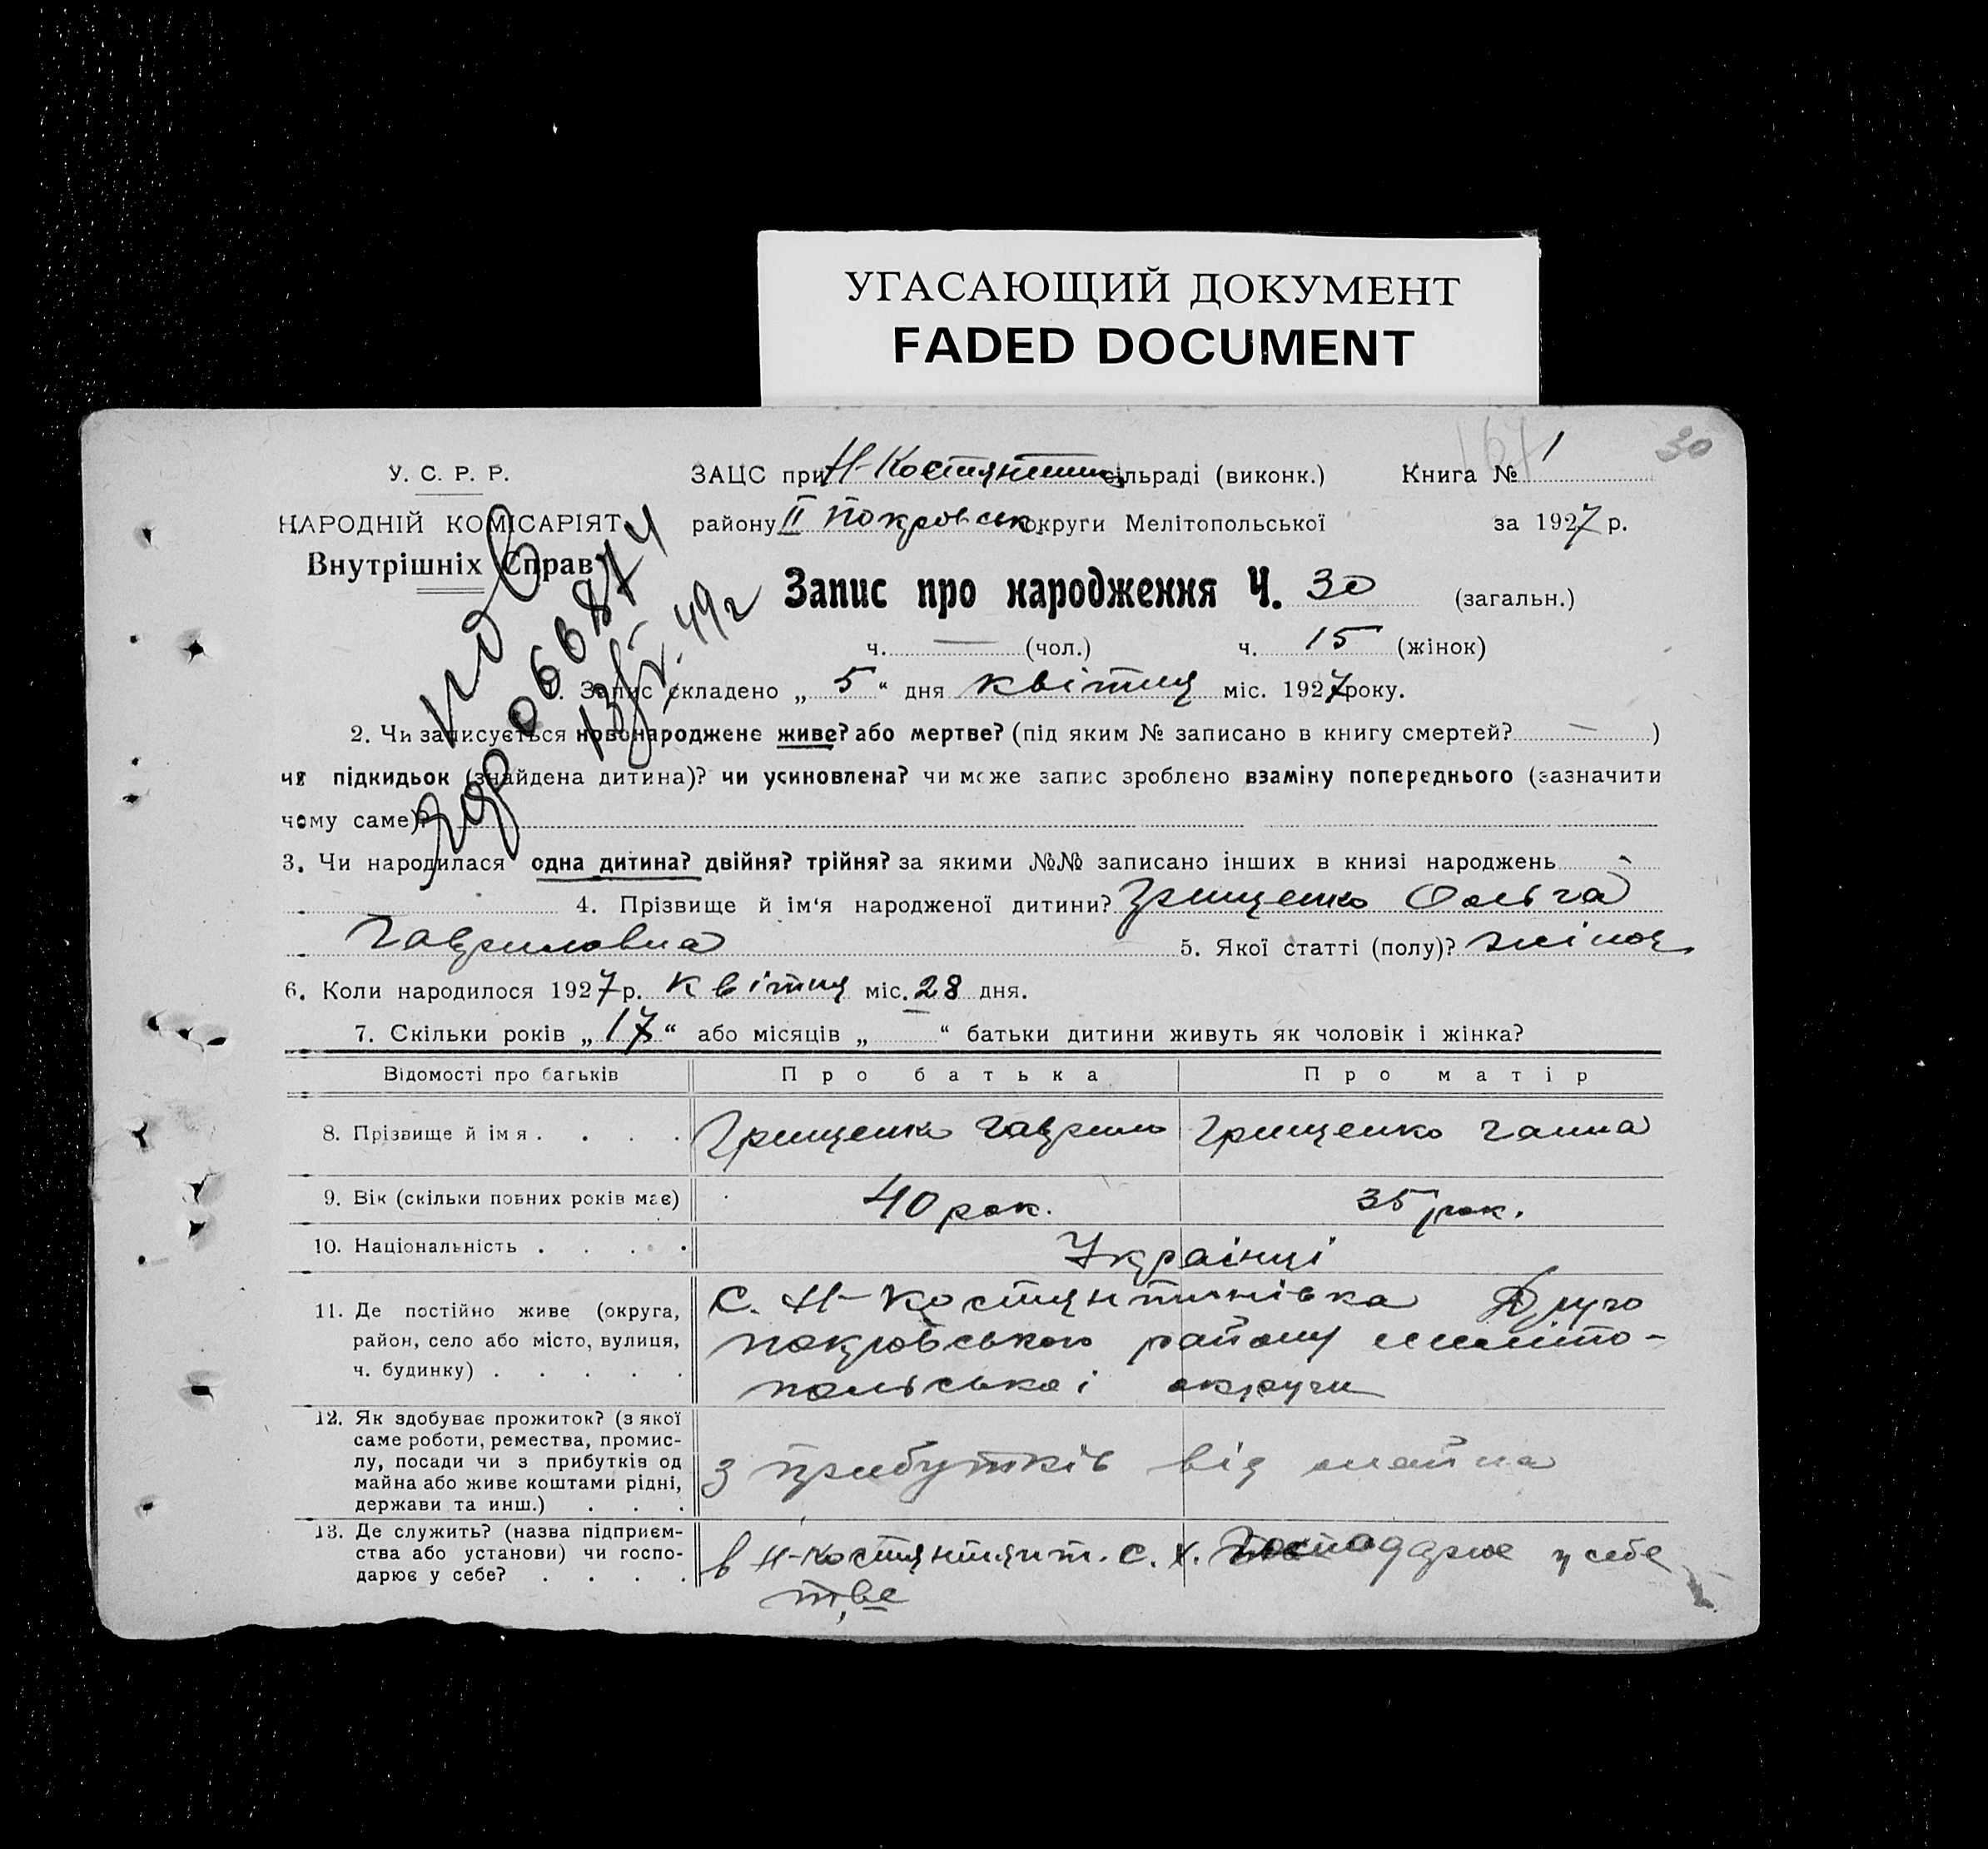 УГАСАЮЩИЙ ДОКУМЕНТ
FADED DOCUMENT
30
У. С. Р. Р.
ЗАЦС при Н-Костянтин сільраді (виконк.) Книга № 1
НАРОДНІЙ КОМІСАРІЯТ
району ІІ Покровськ округи Мелітопольської за 1927 р.
Внутрішніх Справ
Запис про народження Ч. 30 (загальн.)
ч. — (чол.) ч. 15 (жінок)
1. Запис складено „ 5 “ дня квітня міс. 1927 року.
2. Чи записується новонароджене живе? або мертве? (під яким № записано в книгу смертей? — )
чи підкидьок (знайдена дитина)? чи усиновлена? чи може запис зроблено взаміну попереднього (зазначити
чому саме)?
3. Чи народилася одна дитина? двійня? трійня? за якими №№ записано інших в книзі народжень
4. Прізвище й ім‘я народженої дитини? Грищенко Ольга
Гавриловна 5. Якої статті (полу)? жіноч
6. Коли народилося 1927 р. квітня міс. 28 дня.
7. Скільки років „ 17 “ або місяців „ “ батьки дитини живуть як чоловік і жінка?
Відомості про батьків Про батька Про матір
8. Прізвище й імя . . . . Грищенко Гаврило Грищенко Ганна
9. Вік (скільки повних років має) 40 рок. 35 рок.
10. Національність . . . . Українці
11. Де постійно живе (округа, район, село або місто, вулиця, ч. будинку) . . . . .
с. Н-Костянтинівка Друго
покровського району меліто-
польської округи
12. Як здобуває прожиток? (з якої саме роботи, ремества, промис-
лу, посади чи з прибутків од
майна або живе коштами рідні,
держави та инш.) . . .
з прибутків від майна
13. Де служить? (назва підприєм-
ства або установи) чи госпо-
дарює у себе? . . . .
в Н-Костянтинт. с. х. Господарює у себе
тве